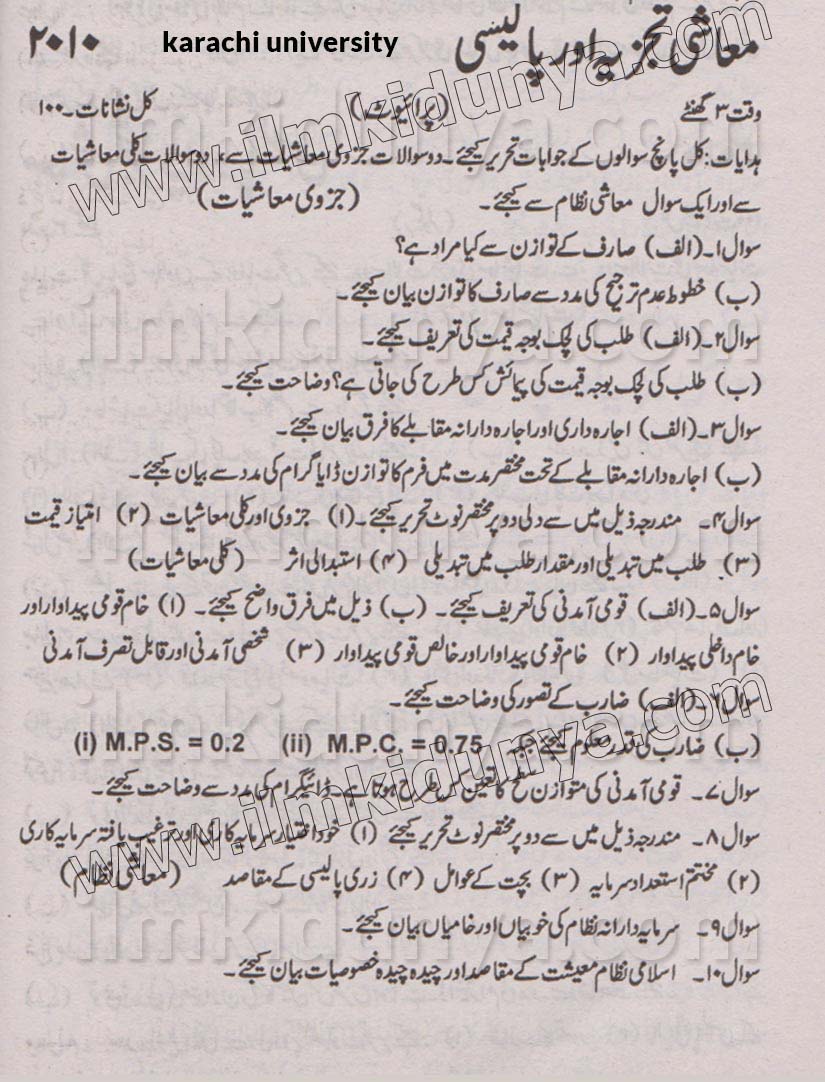 معاشی تجزیہ اور پالیسی karachi university ۲۰۱۰
وقت ۳ گھنٹے (پرائیوٹ) کل نشانات۔۱۰۰
ہدایات: کل پانچ سوالوں کے جوابات تحریر کیجئے۔ دو سوالات جزوی معاشیات سے، دو سوالات کلی معاشیات
سے اور ایک سوال معاشی نظام سے کیجئے۔ (جزوی معاشیات)
سوال۱۔(الف) صارف کے توازن سے کیا مراد ہے؟
(ب) خطوط عدم ترجیح کی مدد سے صارف کا توازن بیان کیجئے۔
سوال۲۔(الف) طلب کی لچک بوجہ قیمت کی تعریف کیجئے۔
(ب) طلب کی لچک بوجہ قیمت کی پیمائش کس طرح کی جاتی ہے؟ وضاحت کیجئے۔
سوال۳۔(الف) اجارہ داری اور اجارہ دارانہ مقابلے کا فرق بیان کیجئے۔
(ب) اجارہ دارانہ مقابلے کے تحت مختصر مدت میں فرم کا توازن ڈایاگرام کی مدد سے بیان کیجئے۔
سوال۴۔ مندرجہ ذیل میں سے دو پر مختصر نوٹ تحریر کیجئے۔(۱) جزوی اور کلی معاشیات (۲) امتیاز قیمت
(۳) طلب میں تبدیلی اور مقدار طلب میں تبدیلی (۴) استبدالی اثر (کلی معاشیات)
سوال۵۔(الف) قومی آمدنی کی تعریف کیجئے۔ (ب) ذیل میں فرق واضح کیجئے۔ (۱) خام قومی پیداوار اور
خام داخلی پیداوار (۲) خام قومی پیداوار اور خالص قومی پیداوار (۳) شخصی آمدنی اور قابل تصرف آمدنی
سوال۶۔(الف) ضارب کے تصور کی وضاحت کیجئے۔
(ب) ضارب کی قدر معلوم کیجئے جبکہ (i) M.P.S. = 0.2 (ii) M.P.C. = 0.75
سوال۷۔ قومی آمدنی کی متوازن سطح کا تعین کس طرح ہوتا ہے۔ ڈائیگرام کی مدد سے وضاحت کیجئے۔
سوال۸۔ مندرجہ ذیل میں سے دو پر مختصر نوٹ تحریر کیجئے (۱) خود اختیار سرمایہ کاری اور ترغیب یافتہ سرمایہ کاری
(۲) مختتم استعداد سرمایہ (۳) بچت کے عوامل (۴) زری پالیسی کے مقاصد (معاشی نظام)
سوال۹۔ سرمایہ دارانہ نظام کی خوبیاں اور خامیاں بیان کیجئے۔
سوال۱۰۔ اسلامی نظام معیشت کے مقاصد اور چیدہ چیدہ خصوصیات بیان کیجئے۔
www.ilmkidunya.com
ilmkidunya.com
ilmkidunya.com
ilmkidunya.com
www.ilmkidunya.com
ilmkidunya.com
ilmkidunya.com